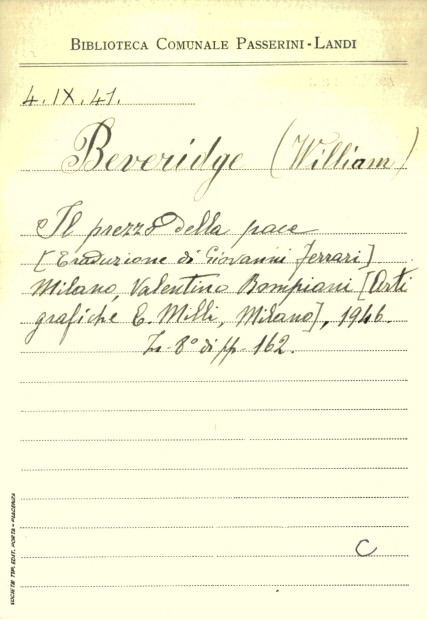 BIBLIOTECA COMUNALE PASSERINI-LANDI
4.IX.41.
Beveridge (William)
Il prezzo della pace
[Traduzione di Giovanni Ferrari]
Milano, Valentino Bompiani [Arti
grafiche E. Milli, Milano], 1946.
In-8° di pp. 162.
C
SOCIETÀ TIP. EDIT. PORTA - PIACENZA